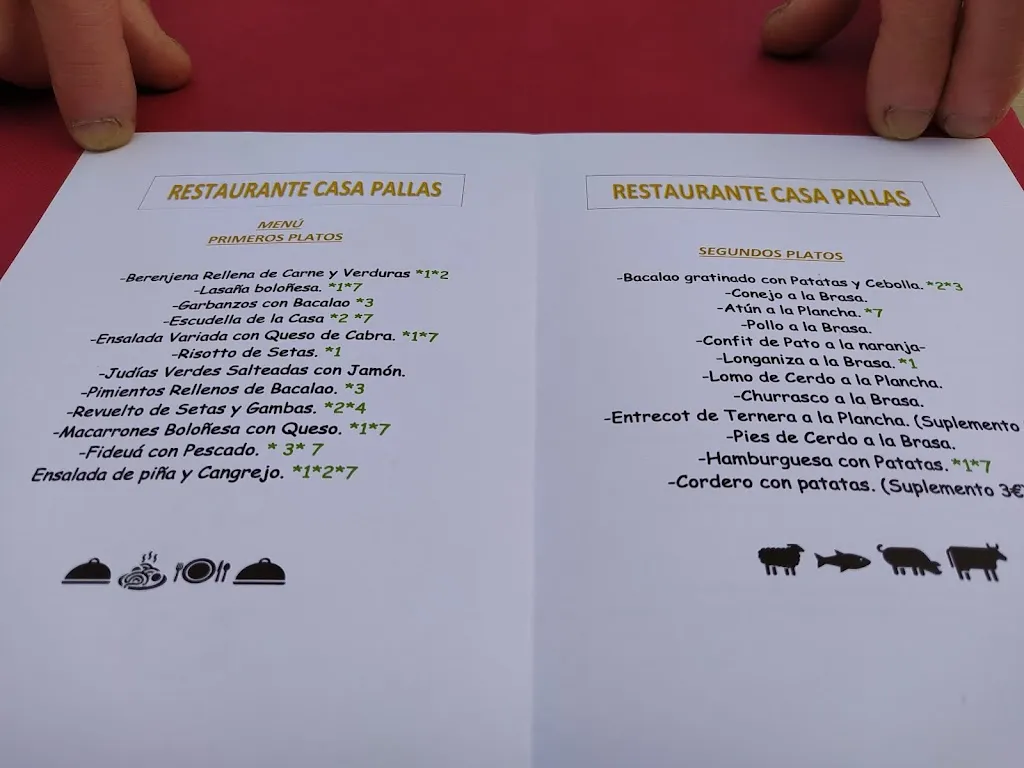 RESTAURANTE CASA PALLAS
MENÚ
PRIMEROS PLATOS
-Berenjena Rellena de Carne y Verduras *1*2
-Lasaña boloñesa. *1*7
-Garbanzos con Bacalao *3
-Escudella de la Casa *2 *7
-Ensalada Variada con Queso de Cabra. *1*7
-Risotto de Setas. *1
-Judías Verdes Salteadas con Jamón.
-Pimientos Rellenos de Bacalao. *3
-Revuelto de Setas y Gambas. *2*4
-Macarrones Boloñesa con Queso. *1*7
-Fideuá con Pescado. * 3* 7
Ensalada de piña y Cangrejo. *1*2*7
RESTAURANTE CASA PALLAS
SEGUNDOS PLATOS
-Bacalao gratinado con Patatas y Cebolla. *2*3
-Conejo a la Brasa.
-Atún a la Plancha. *7
-Pollo a la Brasa.
-Confit de Pato a la naranja-
-Longaniza a la Brasa. *1
-Lomo de Cerdo a la Plancha.
-Churrasco a la Brasa.
-Entrecot de Ternera a la Plancha. (Suplemento
-Pies de Cerdo a la Brasa.
-Hamburguesa con Patatas. *1*7
-Cordero con patatas. (Suplemento 3€